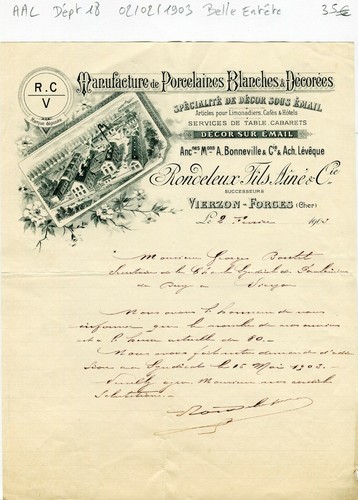 AAL Dépt 18 02/02/1903 Belle Entête 35€
R.C
V
Manufacture de Porcelaines Blanches & Décorées
SPÉCIALITÉ DE DÉCOR SOUS ÉMAIL
Articles pour Limonadiers, Cafés & Hôtels
SERVICES DE TABLE, CABARETS
DÉCOR SUR EMAIL
Ancnes Mons A. Bonneville & Cie & Ach. Lévêque
Rondeleux Fils Ainé & Cie
SUCCESSEURS
VIERZON-FORGES (Cher)
Le 2 Février 1903
Monsieur Georges
Secrétaire de la Syndicale
du à
Nous avons l'honneur de vous
informer que le nombre de nos
est à l'heure actuelle de 80.-
Nous avons fait
au Syndicat le 15 Mai 1902.
Veuillez agréer Monsieur nos cordiales
Salutations.